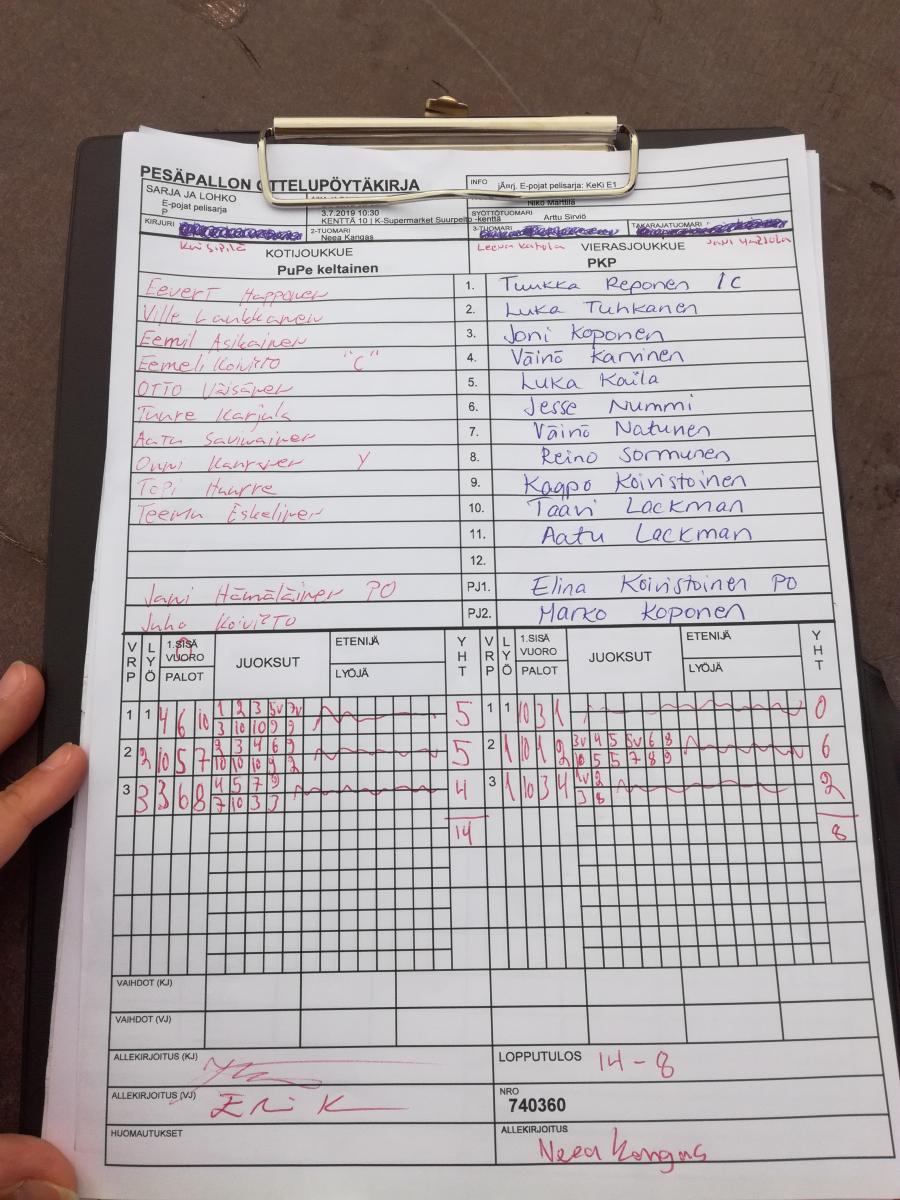 PESÄPALLON OTTELUPÖYTÄKIRJA
INFO jÄ¤rj. E-pojat pelisarja: KeKi E1
SARJA JA LOHKO
E-pojat pelisarja
P
3.7.2019 10:30
KENTTÄ 10 | K-Supermarket Suurpelto -kenttä
Niko Marttila
SYÖTTÖTUOMARI Arttu Sirviö
KIRJURI
2-TUOMARI
Neea Kangas
3-TUOMARI
TAKARAJATUOMARI
KOTIJOUKKUE VIERASJOUKKUE
PuPe keltainen PKP
Eevert Happonen 1. Tuukka Reponen 1C
Ville Laukkanen 2. Luka Tuhkanen
Eemil Asikainen 3. Joni Koponen
Eemeli Koivisto "C" 4. Väinö Karvinen
Otto Väisänen 5. Luka Kaila
Tuure Karjula 6. Jesse Nummi
Aatu Savinainen 7. Väinö Natunen
Onni Y 8. Reino Sormunen
Topi Huurre 9. Kaapo Koivistoinen
Teemu Eskelinen 10. Taavi Lackman
11. Aatu Lackman
12.
Jani Hämäläinen PO PJ1. Elina Koivistoinen PO
Juho Koivisto PJ2. Marko Koponen
VRP LYÖ 1.SISÄ VUORO PALOT JUOKSUT ETENIJÄ LYÖJÄ YHT VRP LYÖ 1.SISÄ VUORO PALOT JUOKSUT ETENIJÄ LYÖJÄ YHT
1 1 4 6 10 1 2 3 5v 7v 5 1 1 10 3 1 0
3 10 10 9 9
2 2 10 5 7 2 3 4 6 9 5 2 1 10 1 2 3v 4 5 5v 6 8 6
10 10 10 9 2 10 5 5 7 8 9
3 3 3 6 8 4 5 7 9 4 3 1 10 3 4 1v 2 2
7 10 3 3 3 8
14 8
VAIHDOT (KJ)
VAIHDOT (VJ)
ALLEKIRJOITUS (KJ) LOPPUTULOS 14-8
ALLEKIRJOITUS (VJ) Eli K NRO
740360
HUOMAUTUKSET ALLEKIRJOITUS
Neea Kangas